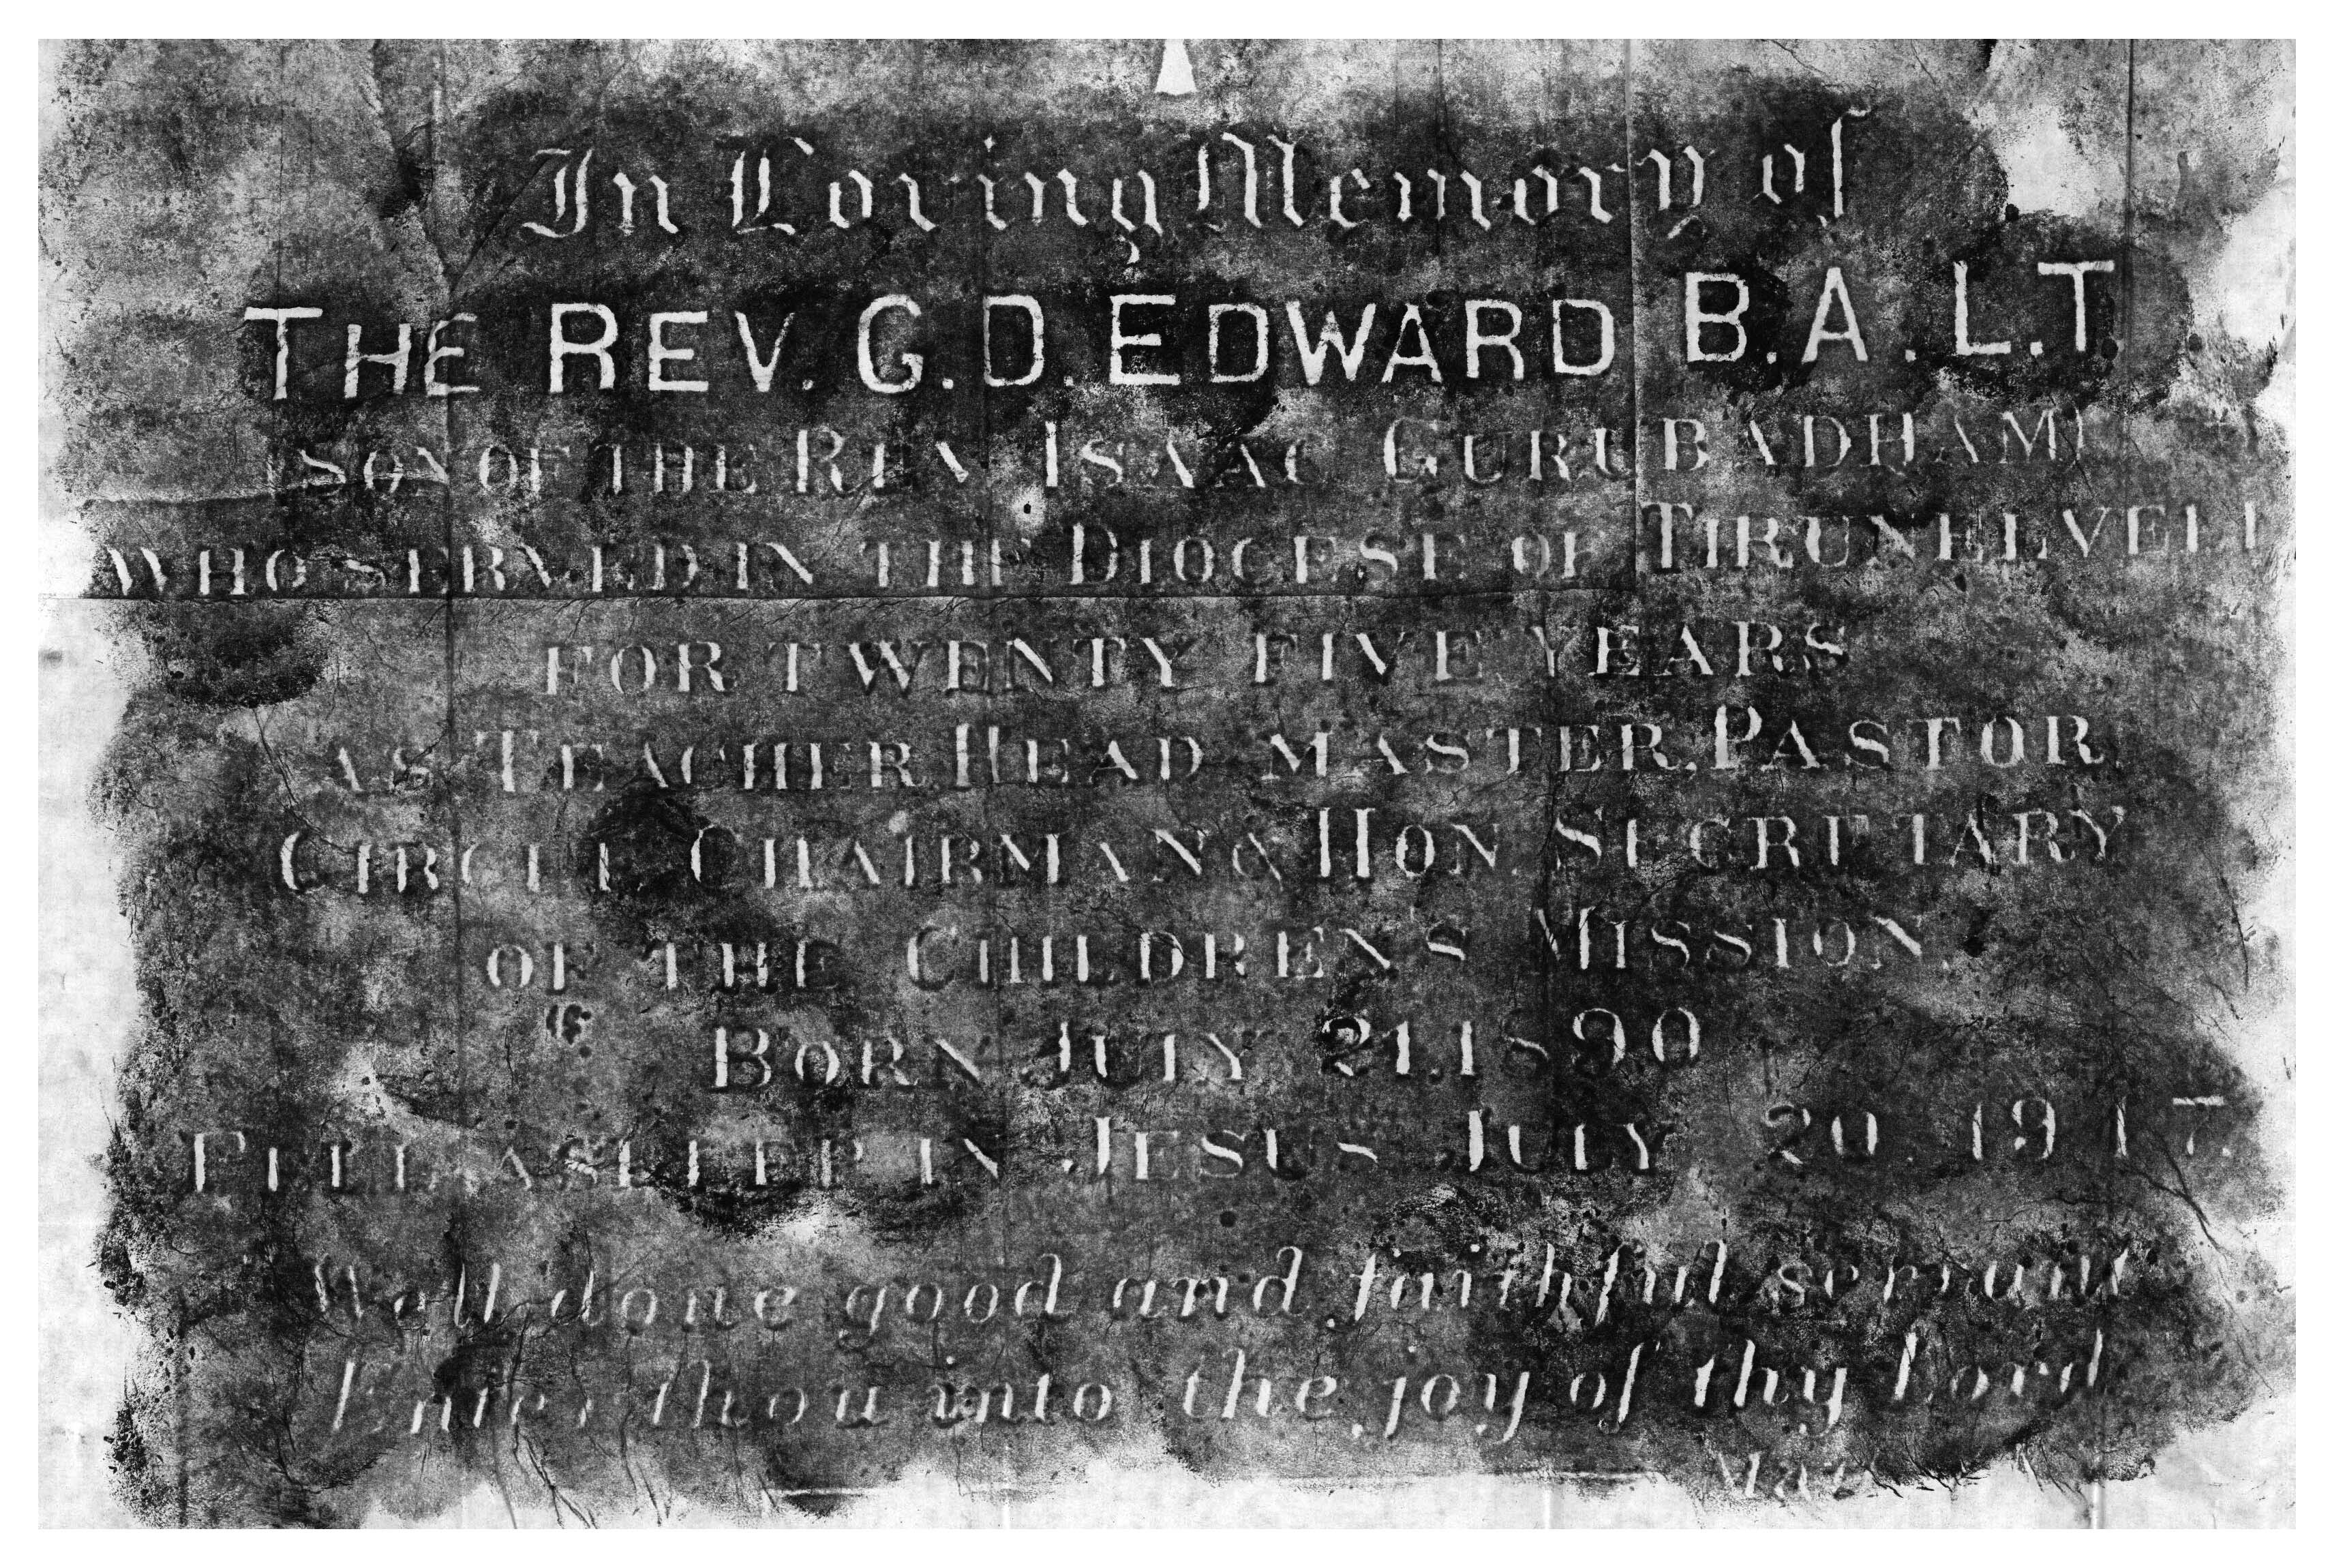 In Loving Memory of
THE REV. G.D. EDWARD B.A. L.T.
SON OF THE REV ISAAC GURUBADHAM
WHO SERVED IN THE DIOCESE OF TIRUNELVELI
FOR TWENTY FIVE YEARS
AS TEACHER, HEAD MASTER, PASTOR,
CIRCLE CHAIRMAN & HON. SECRETARY
OF THE CHILDREN'S MISSION.
BORN JULY 21.1890
FELL ASLEEP IN JESUS JULY 20. 1947.
Well done good and faithful servant
Enter thou into the joy of thy Lord
Mat